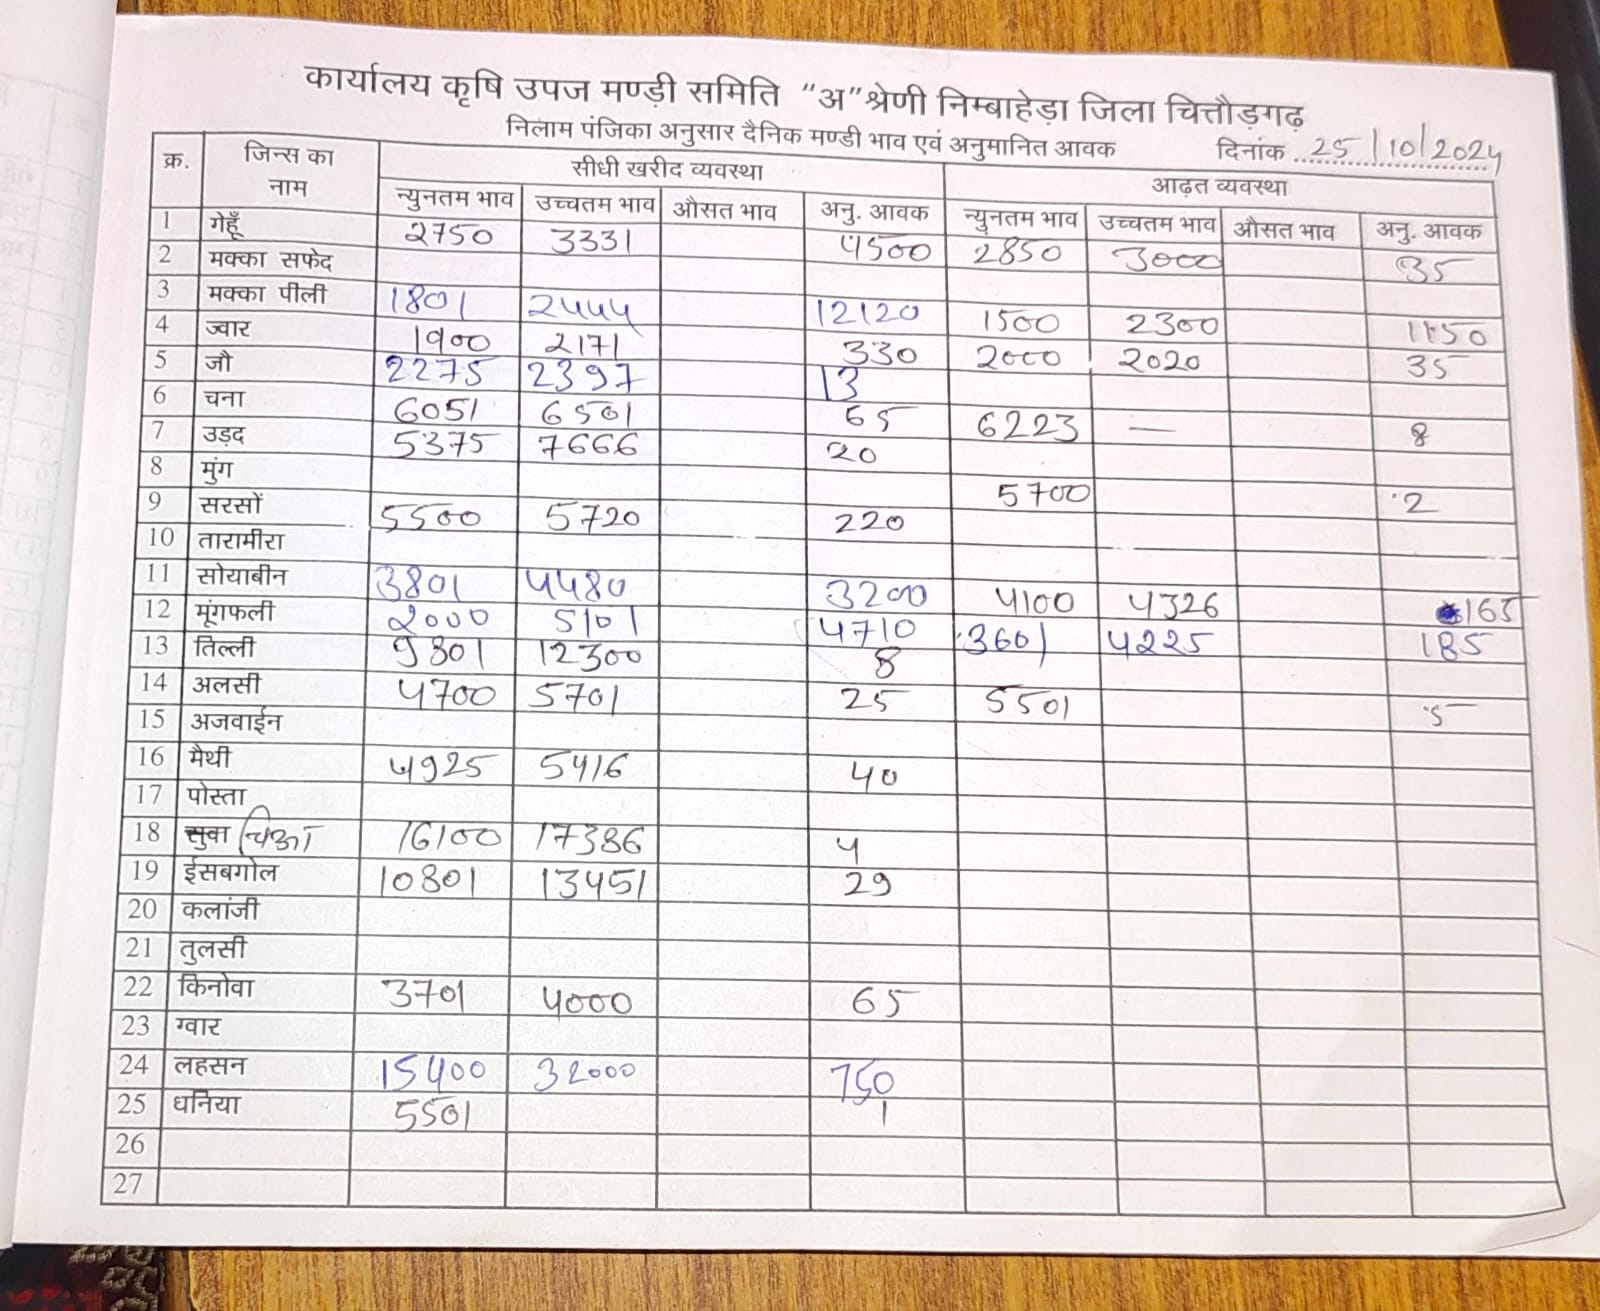 कार्यालय कृषि उपज मण्ड़ी समिति "अ" श्रेणी निम्बाहेड़ा जिला चित्तौड़गढ़
निलाम पंजिका अनुसार दैनिक मण्डी भाव एवं अनुमानित आवक दिनांक 25/10/2024
क्र. जिन्स का नाम सीधी खरीद व्यवस्था आढ़त व्यवस्था
न्युनतम भाव उच्चतम भाव औसत भाव अनु. आवक न्युनतम भाव उच्चतम भाव औसत भाव अनु. आवक
1 गेहूँ 2750 3331 4500 2850 3000 35
2 मक्का सफेद
3 मक्का पीली 1801 2444 12120 1500 2300
4 ज्वार 1900 2171 330 2000 2020 35
5 जौ 2275 2397 13
6 चना 6051 6501 65 6223 — 8
7 उड़द 5375 7666 20
8 मुंग 5700 2
9 सरसों 5500 5720 220
10 तारामीरा
11 सोयाबीन 3801 4480 3200 4100 4326 165
12 मूंगफली 2000 5101 4710 3601 4225 185
13 तिल्ली 9801 12300 8
14 अलसी 4700 5701 25 5501 5
15 अजवाईन
16 मैथी 4925 5416 40
17 पोस्ता
18 सुवा/चिया 16100 17386 4
19 ईसबगोल 10801 13451 29
20 कलांजी
21 तुलसी
22 किनोवा 3701 4000 65
23 ग्वार
24 लहसन 15400 32000 750
25 धनिया 5501 1
26
27